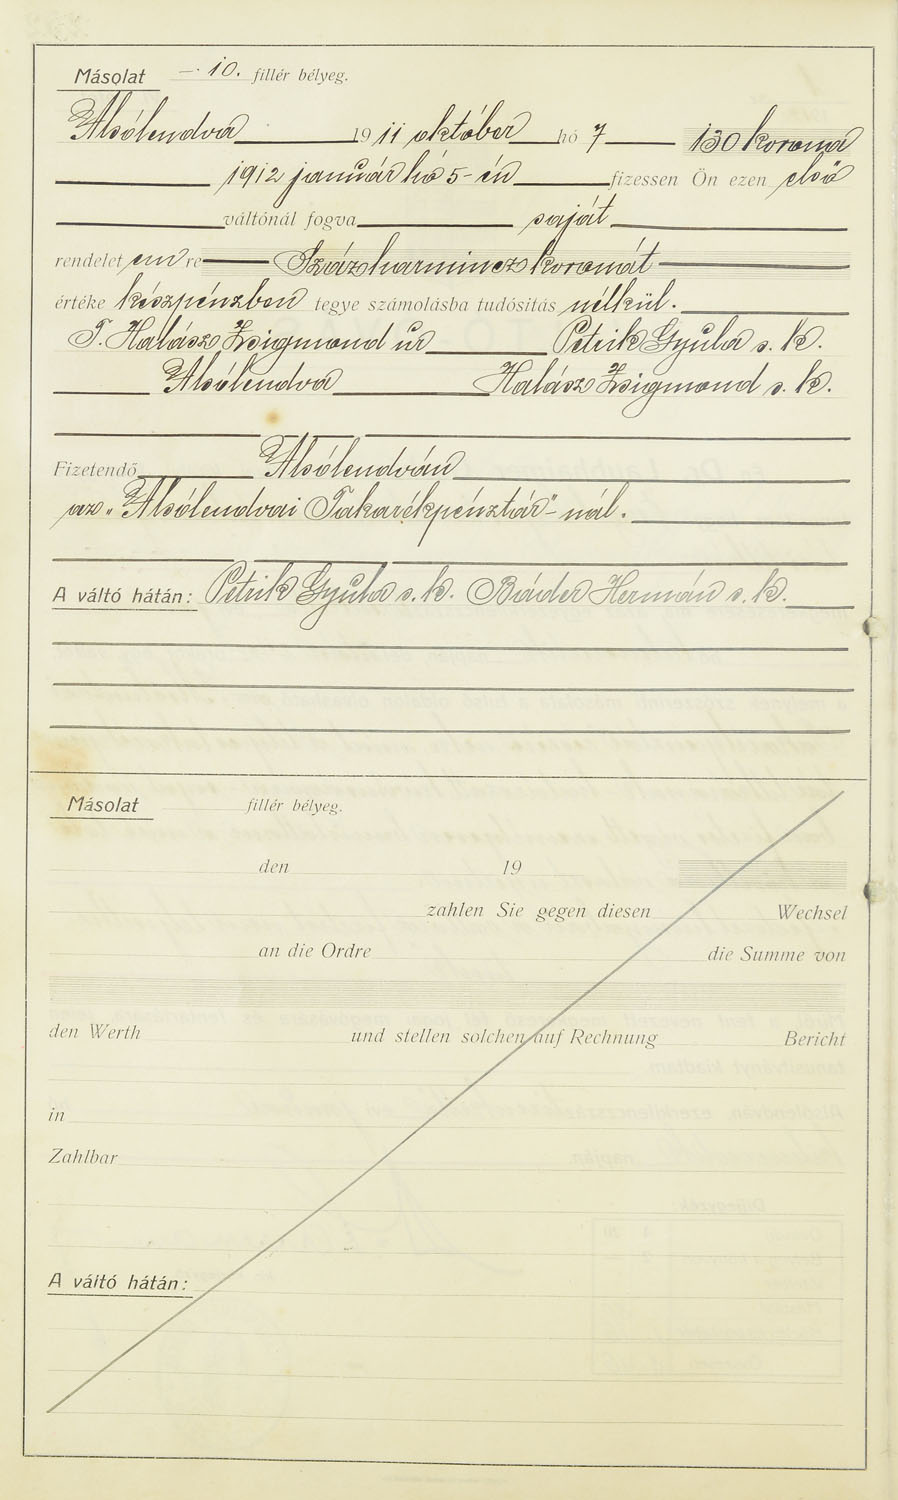 Másolat 10. fillér bélyeg.
Alsólendva 1911 október hó 7 130 korona
1912 január hó 5-én fizessen Ön ezen első
váltónál fogva saját
rendeletemre Százharmincz koronát
értéke készpénzben tegye számolásba tudósítás nélkül.
T. Halász Zsigmond úr Petrik Gyula s. k.
Alsólendva Halász Zsigmond s. k.
Fizetendő Alsólendván
az „Alsólendvai Takarékpénztár"-nál.
A váltó hátán: Petrik Gyula s. k. Báder Hermán s. k.
Másolat fillér bélyeg.
den 19
zahlen Sie gegen diesen Wechsel
an die Ordre die Summe von
den Werth und stellen solchen auf Rechnung Bericht
in
Zahlbar
A váltó hátán: